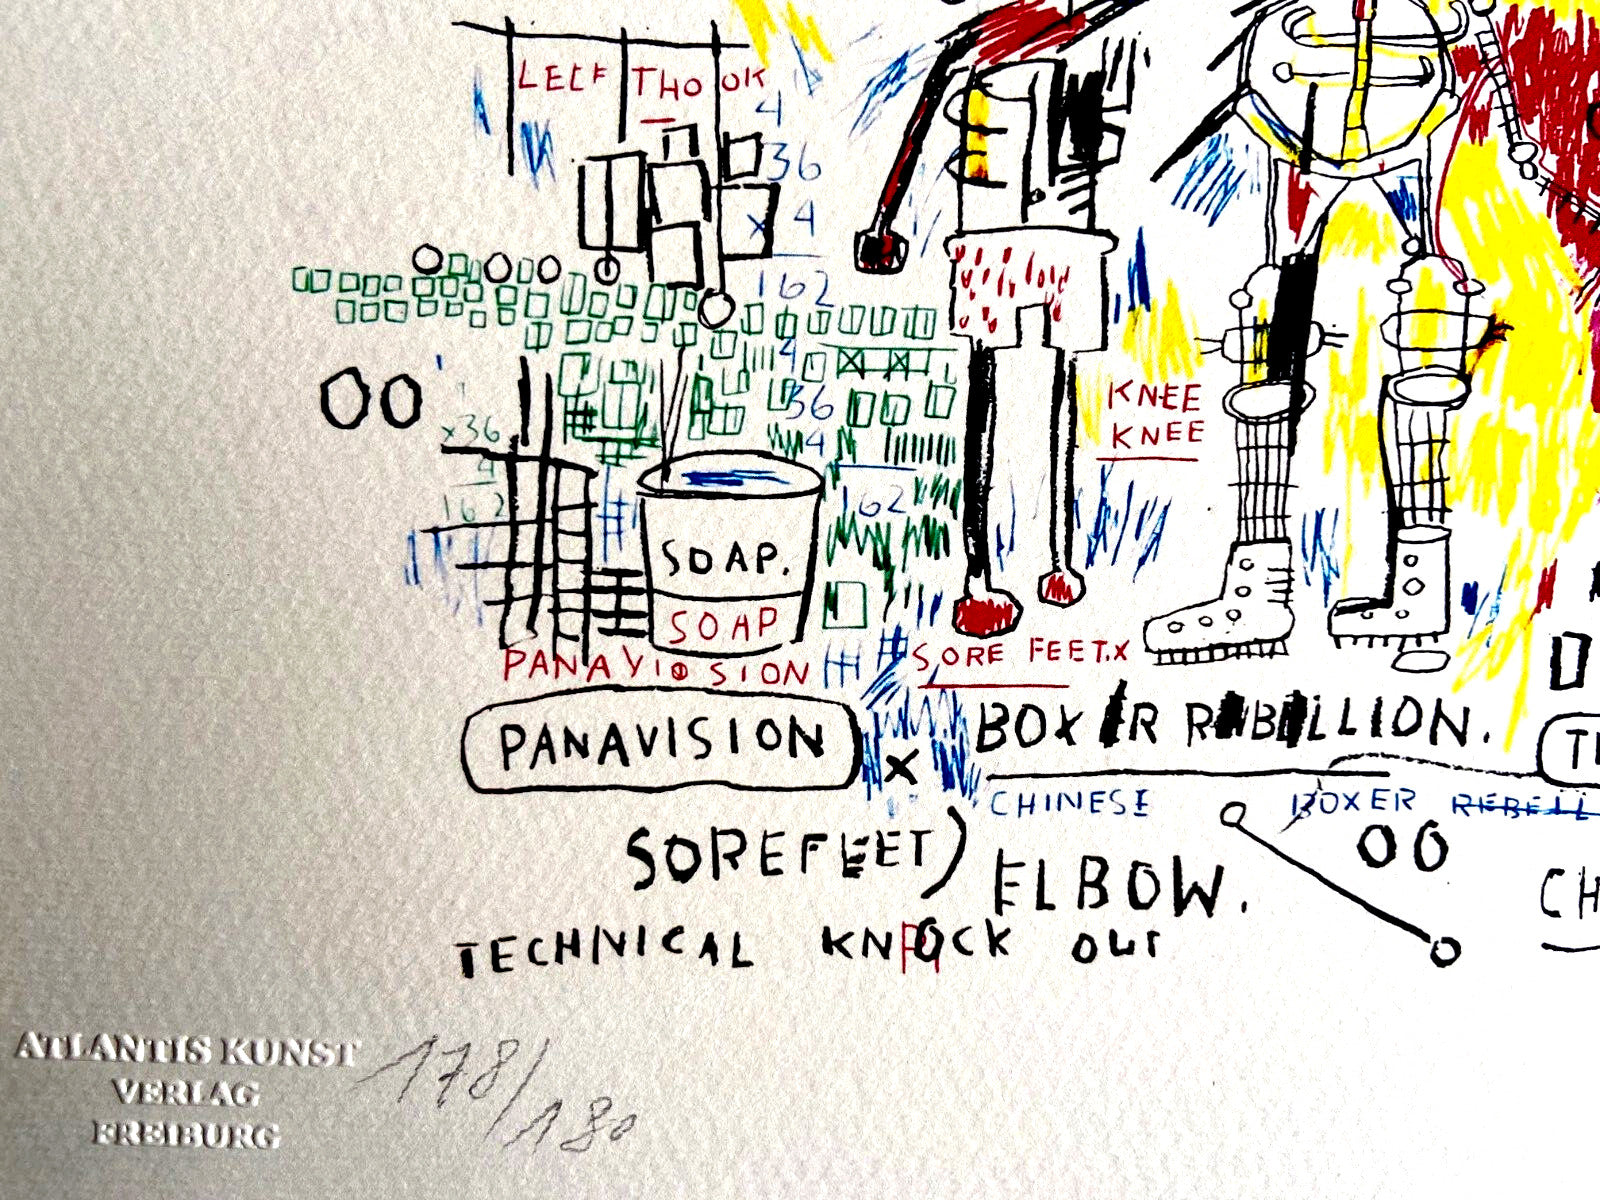 LEEF THO OK
4
36
x 4
162
4
x36
36
4
4
162
162
KNEE
KNEE
SOAP.
SOAP
PANAVISION
SORE FEET.X
PANAVISION
X
BOXER REBELLION.
CHINESE BOXER REBELL
SOREFEET)
ELBOW.
CH
TECHNICAL KNOCK OUT
ATLANTIS KUNST
VERLAG
FREIBURG
178/180